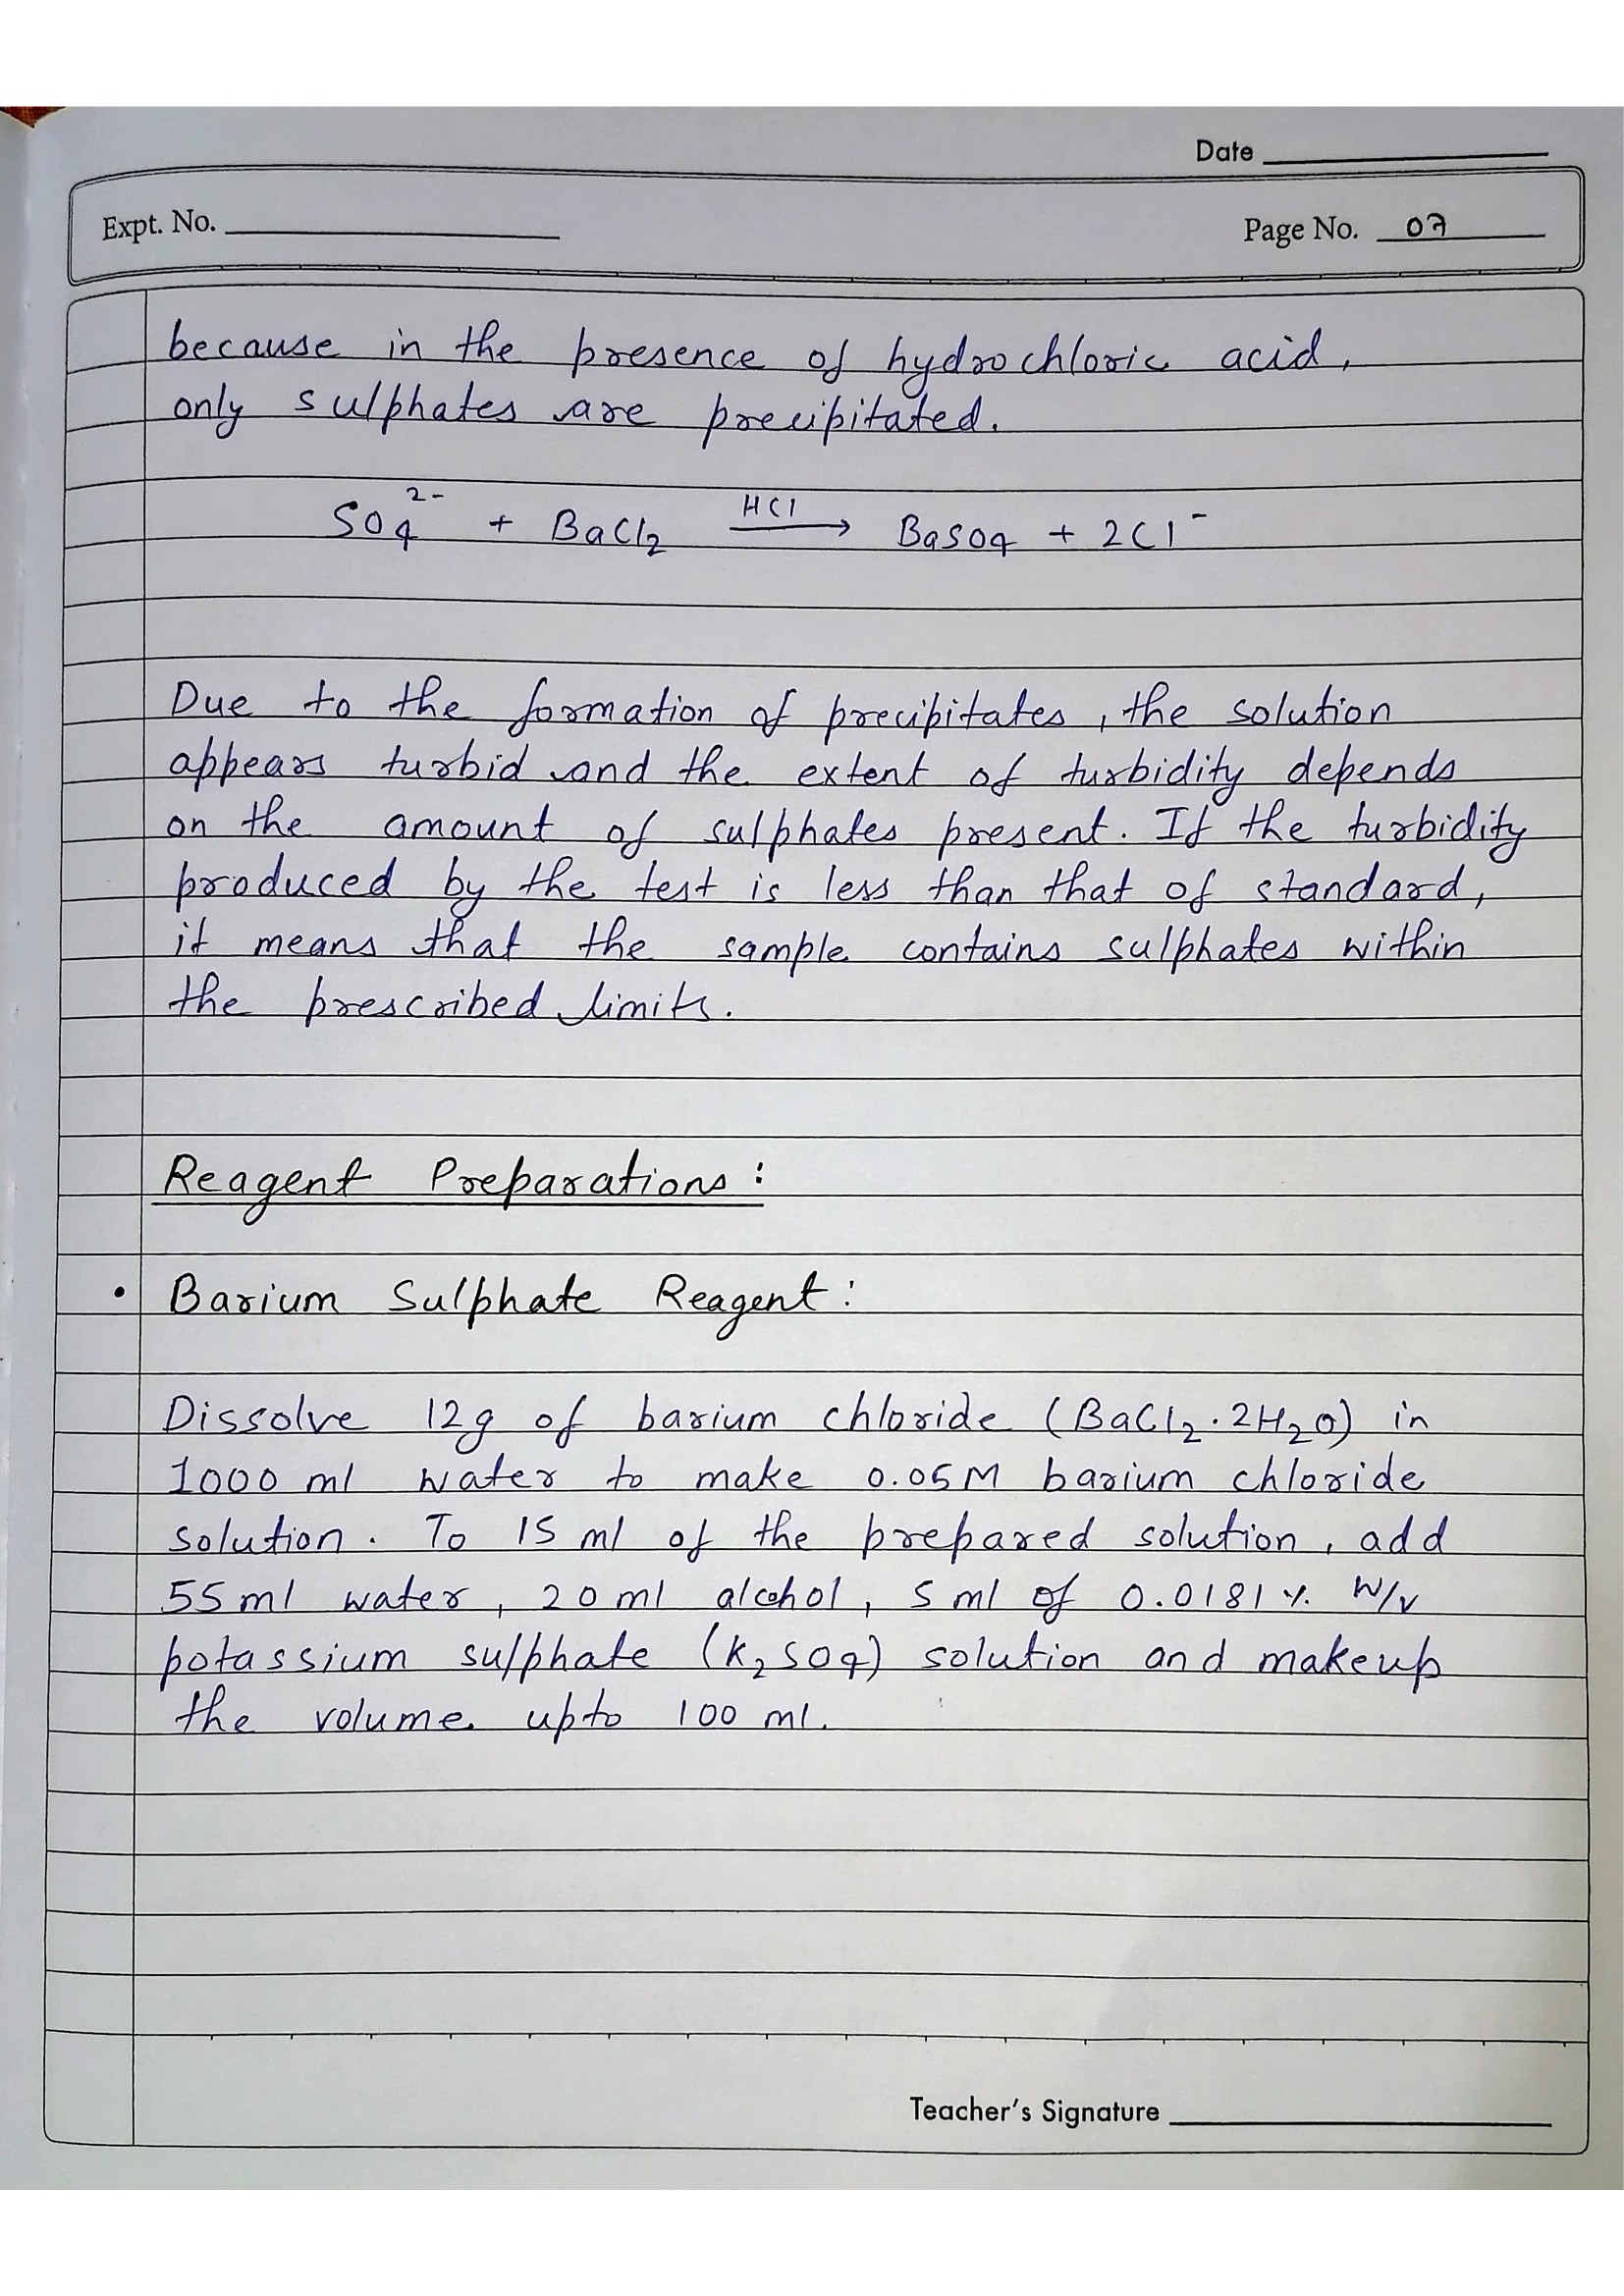 Date
Expt. No.
Page No. 07
because in the presence of hydrochloric acid,
only sulphates are precipitated.
SO₄²⁻ + BaCl₂ —HCl→ BaSO₄ + 2Cl⁻
Due to the formation of precipitates, the solution
appears turbid and the extent of turbidity depends
on the amount of sulphates present. If the turbidity
produced by the test is less than that of standard,
it means that the sample contains sulphates within
the prescribed limits.
Reagent Preparations:
• Barium Sulphate Reagent:
Dissolve 12g of barium chloride (BaCl₂·2H₂O) in
1000 ml water to make 0.05M barium chloride
solution. To 15 ml of the prepared solution, add
55 ml water, 20 ml alcohol, 5 ml of 0.0181% W/v
potassium sulphate (K₂SO₄) solution and makeup
the volume upto 100 ml.
Teacher's Signature